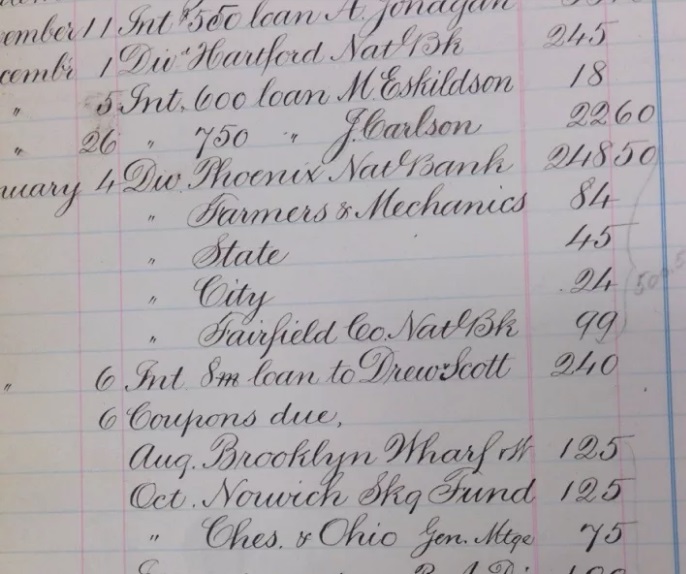 ember 11 Int $550 loan A. Jonagan
cembr 1 Div Hartford Natl Bk 245
" 5 Int. 600 loan M Eskildson 18
" 26 " 750 " J. Carlson 22 60
nuary 4 Div Phoenix Natl Bank 248 50
" Farmers & Mechanics 84
" State 45
" City 24
" Fairfield Co. Natl Bk 99
" 6 Int 8m loan to Drew & Scott 240
6 Coupons due,
Aug. Brooklyn Wharf 125
Oct. Norwich Skg Fund 125
" Ches. & Ohio Gen. Mtge 75